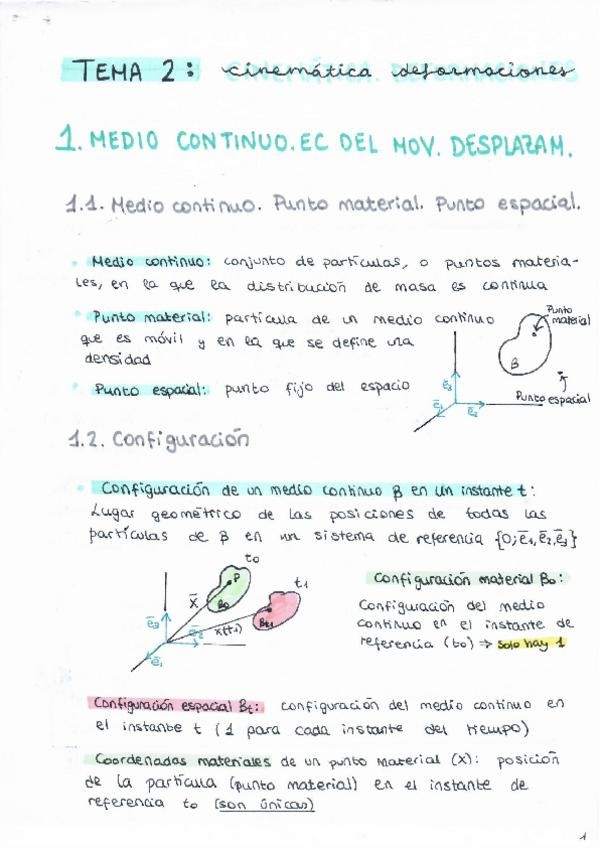 TEMA 2: cinemática deformaciones
1. MEDIO CONTINUO. EC DEL MOV. DESPLAZAM.
1.1. Medio continuo. Punto material. Punto espacial.
• Medio continuo: conjunto de partículas, o puntos materia-
les, en la que la distribución de masa es continua
• Punto material: partícula de un medio continuo
que es móvil y en la que se define una
densidad
• Punto espacial: punto fijo del espacio
Punto
material
B
Punto espacial
e̅₃
e̅₁
e̅₂
1.2. Configuración
• Configuración de un medio continuo β en un instante t:
Lugar geométrico de las posiciones de todas las
partículas de β en un sistema de referencia {0; e̅₁, e̅₂, e̅₃}
t₀
P
B₀
t₁
Bt₁
X̅
x(t₁)
e̅₃
e̅₂
e̅₁
Configuración material B₀:
Configuración del medio
continuo en el instante de
referencia (t₀) ⇒ solo hay 1
Configuración espacial Bt: configuración del medio continuo en
el instante t (1 para cada instante del tiempo)
Coordenadas materiales de un punto material (X): posición
de la partícula (punto material) en el instante de
referencia t₀ (son únicas)
1